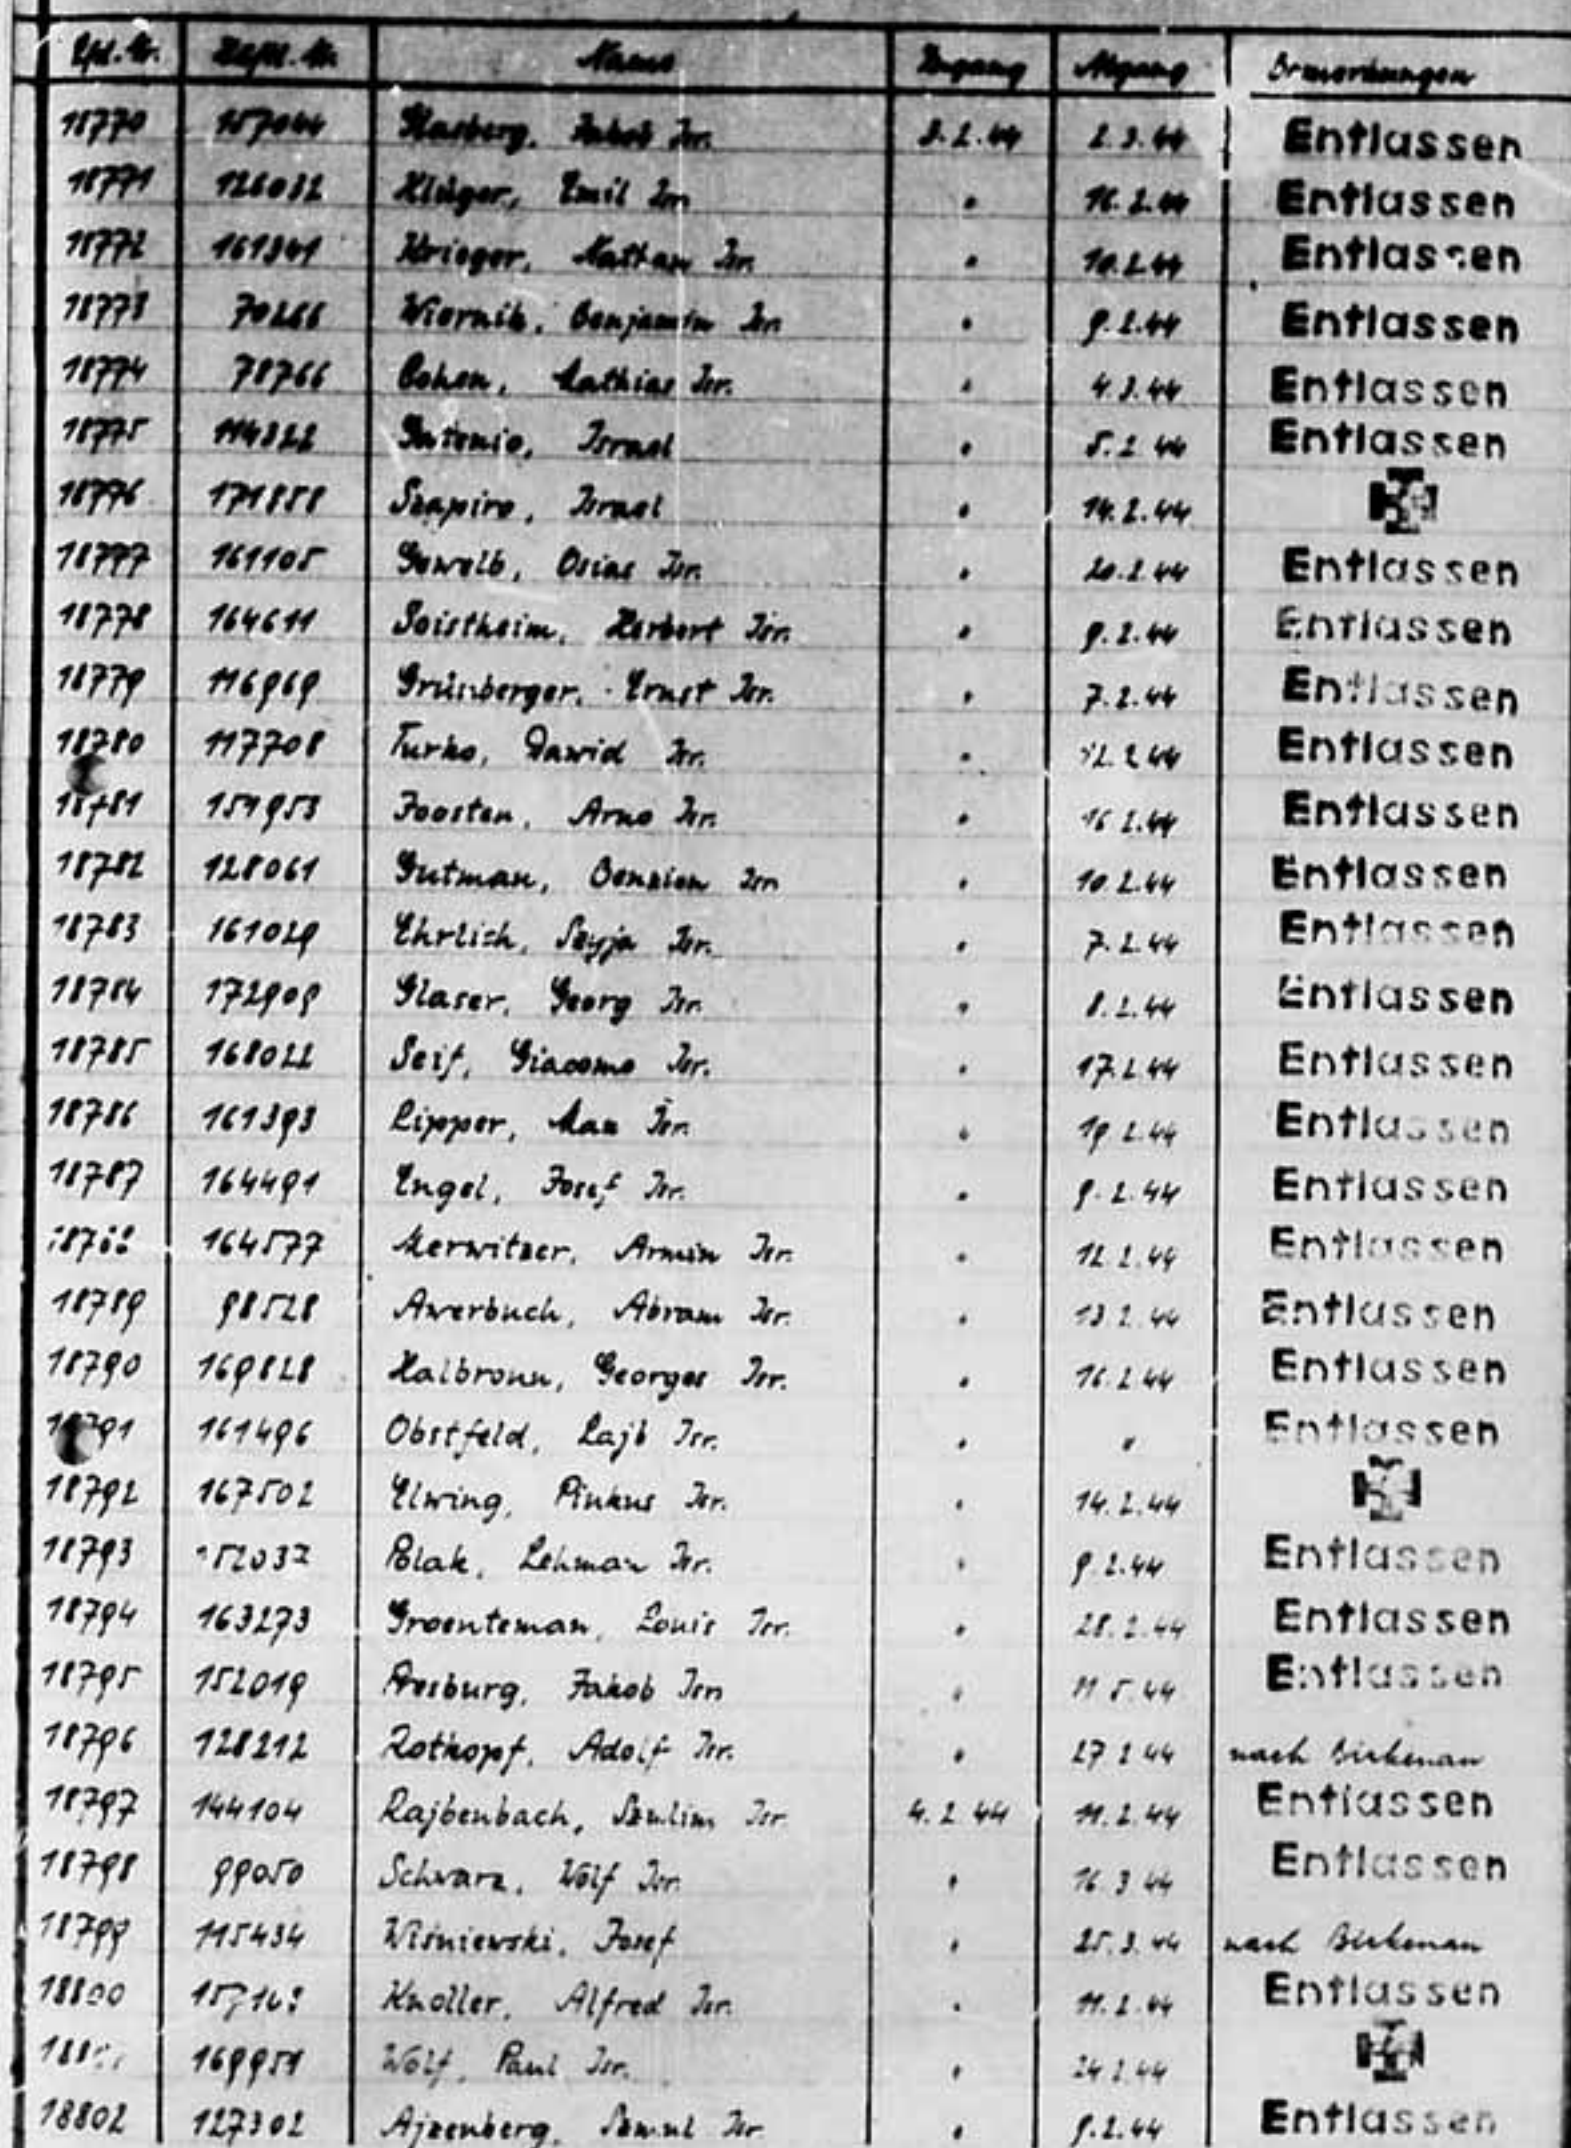 Lfd. Nr. Häftl. Nr. Name Zugang Abgang Bemerkungen
18770 157044 Isr. 3.2.44 2.3.44 Entlassen
18771 126032 Klüger, Emil Isr. " 16.2.44 Entlassen
18772 161341 Krieger, Nattan Isr. " 10.2.44 Entlassen
18773 70266 Wiernik, Benjamin Isr. " 9.2.44 Entlassen
18774 78766 Cohen, Mathias Isr. " 4.3.44 Entlassen
18775 114322 Israel " 5.2.44 Entlassen
18776 171858 Szapiro, Israel " 14.2.44
18777 161105 Gewelb, Osias Isr. " 20.2.44 Entlassen
18778 164611 Herbert Isr. " 9.2.44 Entlassen
18779 116969 Grünberger, Ernst Isr. " 7.2.44 Entlassen
18780 117708 Turko, Dawid Isr. " 12.2.44 Entlassen
18781 151953 Joosten, Arno Isr. " 16.2.44 Entlassen
18782 128061 Gutman, Benzion Isr. " 10.2.44 Entlassen
18783 161029 Ehrlich, Isr. " 7.2.44 Entlassen
18784 172909 Glaser, Georg Isr. " 8.2.44 Entlassen
18785 168022 Seif, Giacomo Isr. " 17.2.44 Entlassen
18786 161393 Lipper, Max Isr. " 19.2.44 Entlassen
18787 164491 Engel, Josef Isr. " 9.2.44 Entlassen
164577 Merwitzer, Armin Isr. " 12.2.44 Entlassen
18789 98528 Awerbuch, Abram Isr. " 13.2.44 Entlassen
18790 169828 Halbronn, Georges Isr. " 16.2.44 Entlassen
18791 161496 Obstfeld, Lajb Isr. " " Entlassen
18792 167502 Elwing, Pinkus Isr. " 14.2.44
18793 Blak, Lehman Isr. " 9.2.44 Entlassen
18794 163273 Groenteman, Louis Isr. " 28.2.44 Entlassen
18795 152019 Jakob Isr. " 11.5.44 Entlassen
18796 128212 Rotkopf, Adolf Isr. " 27.2.44 nach Birkenau
18797 144104 Rajbenbach, Szulim Isr. 4.2.44 11.2.44 Entlassen
18798 99050 Schwarz, Wolf Isr. " 16.3.44 Entlassen
18799 115434 Wiśniewski, Josef " 25.3.44 nach Birkenau
18800 Knoller, Alfred Isr. " 11.2.44 Entlassen
169951 Wolf, Paul Isr. " 24.2.44
18802 127302 Ajzenberg, Samul Isr. " 9.2.44 Entlassen